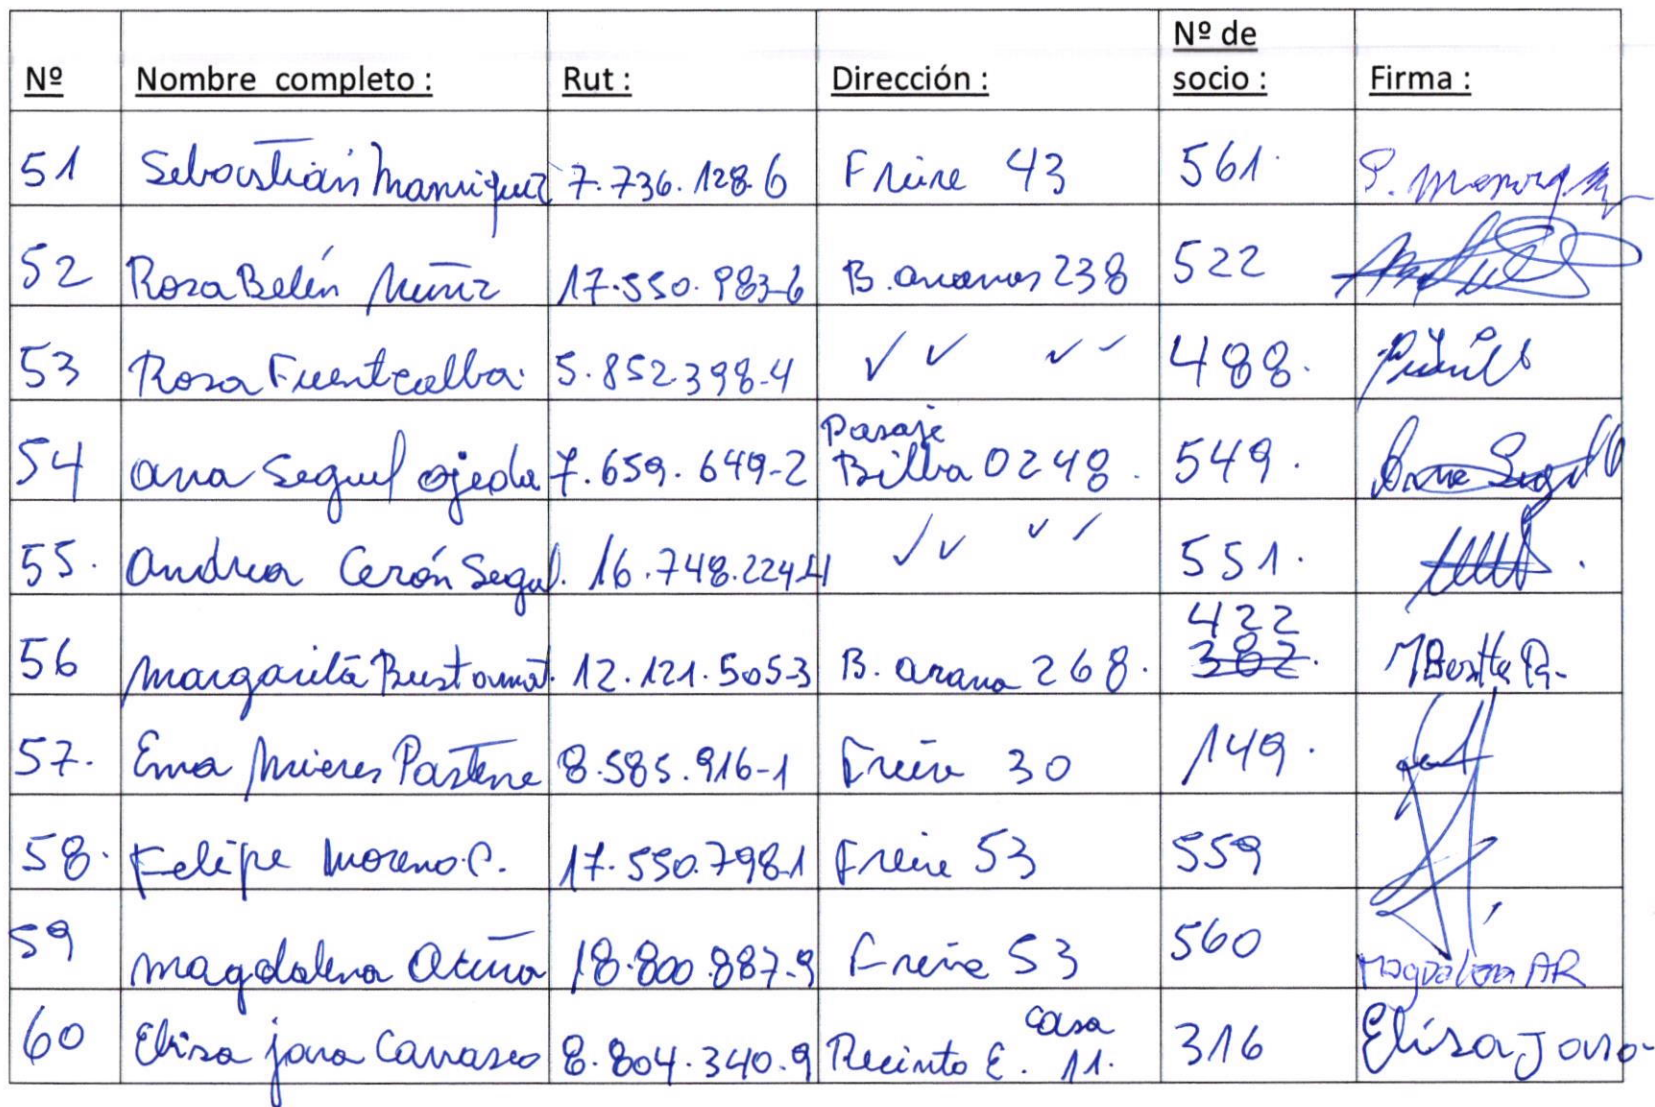 Nº Nombre completo : Rut : Dirección : Nº de socio : Firma :
51 Sebastián Manriquez 7.736.128.6 Freire 43 561. S. Manriquez
52 Rosa Belén Muñiz 17.550.983-6 B. aranas 238 522
53 Rosa Fuentealba. 5.852.398-4 ✓✓ ✓✓ 488.
54 ana Seguel ojeda 7.659.649-2 Pasaje Bilba 0248. 549. Ana Seguel O
55. andrea Cerón Seguel. 16.748.224-4 ✓✓ ✓✓ 551.
56 Margarita Bustamat. 12.121.505-3 B. arana 268. 422 382.
57. Ema Mieres Pastene 8.585.916-1 Freire 30 149.
58. Felipe Moreno P. 17.550.798-1 Freire 53 559
59 magdalena Acuña 18.800.887-9 Freire 53 560 Magdalena AR
60 Elisa jara Carrasco 8.804.340.9 Recinto E. casa 11. 316 Elisa Jara